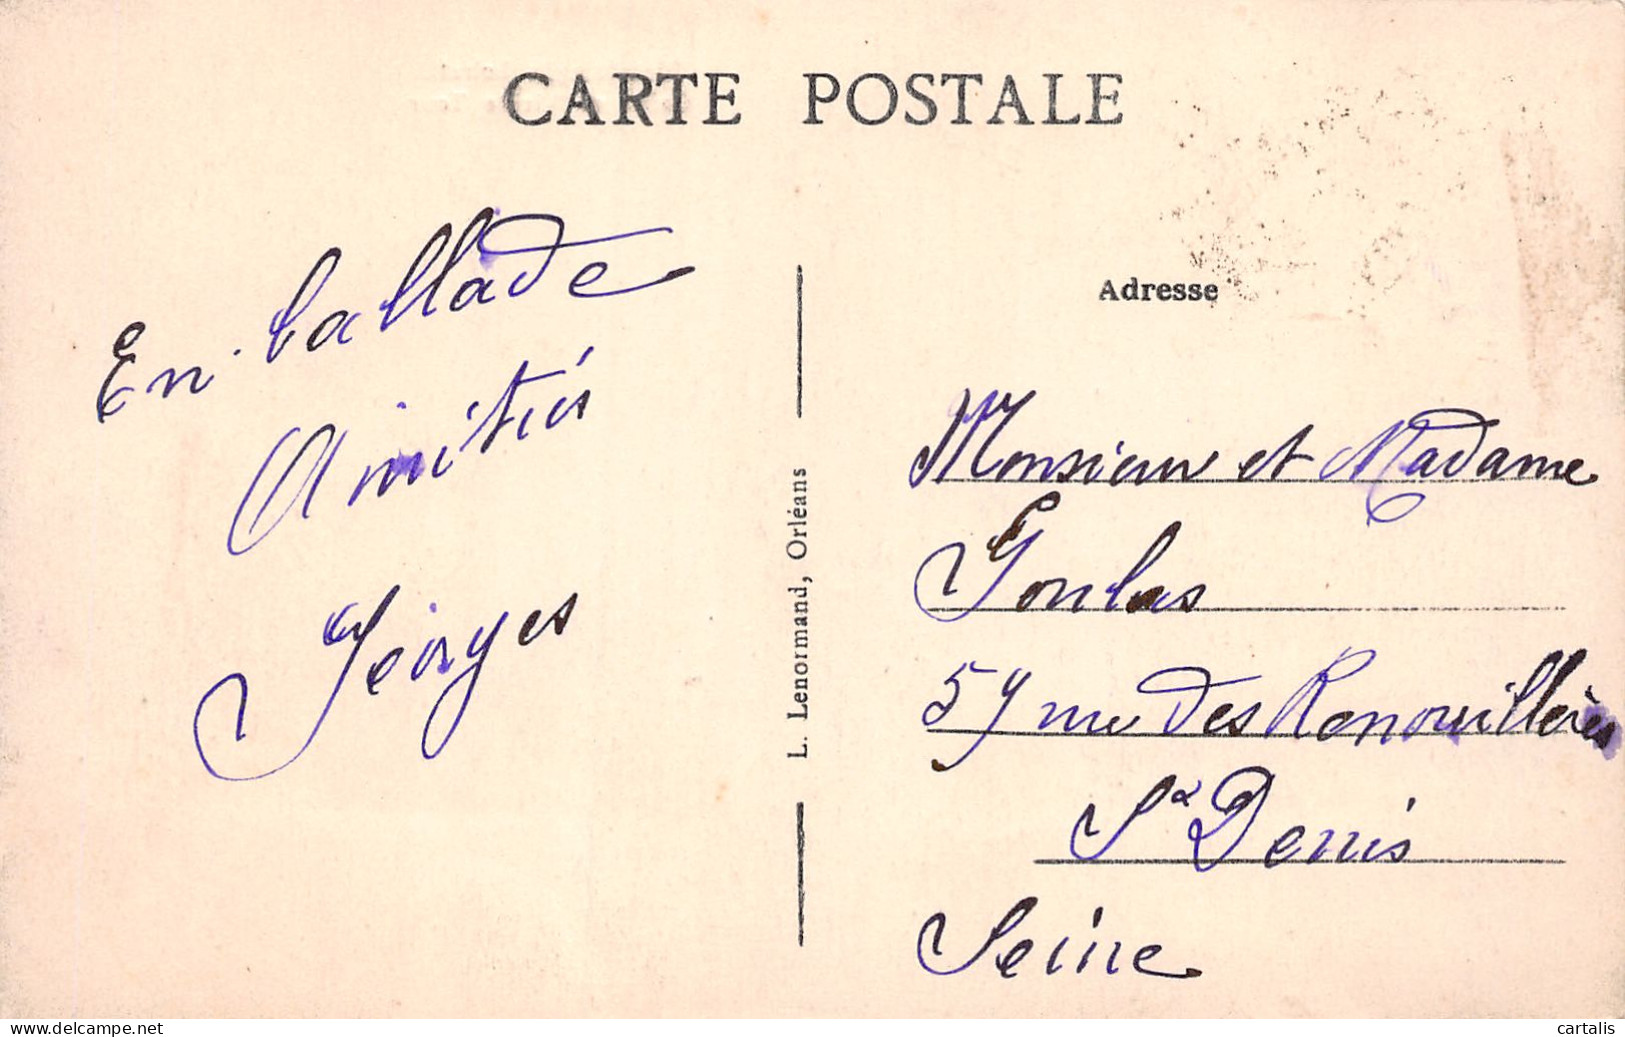 CARTE POSTALE
En ballade
Amitiés
Georges
L. Lenormand, Orléans
Adresse
Monsieur et Madame
Goulas
59 rue des Renouillères
St Denis
Seine
www.delcampe.net
cartalis